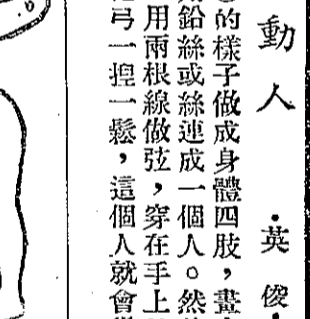 動人 ·英俊·
的樣子做成身體四肢，畫
鉛絲或絲連成一個人。然
用兩根線做弦，穿在手上
弓一揑一鬆，這個人就會